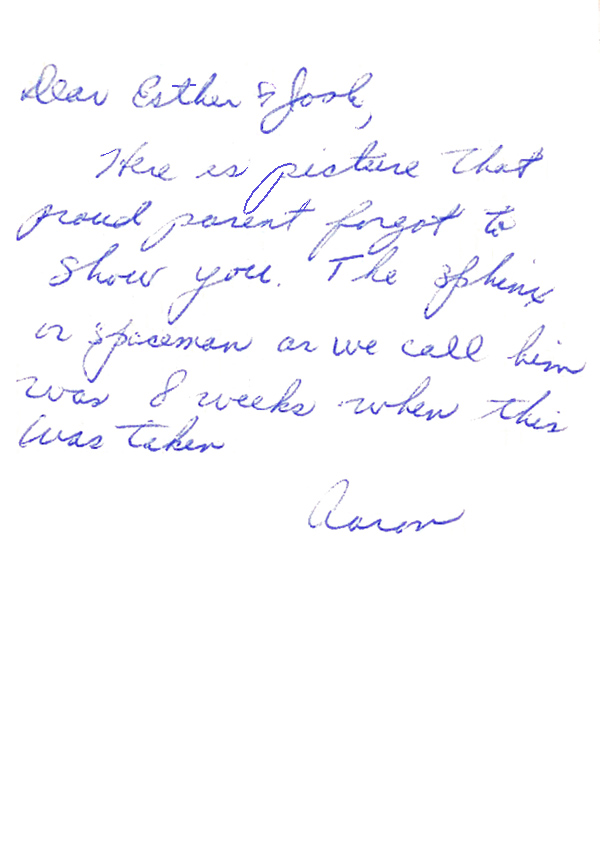 Dear Esther & Josh,
Here is picture that
proud parent forgot to
show you. The sphinx
or spaceman as we call him
was 8 weeks when this
was taken
Aaron